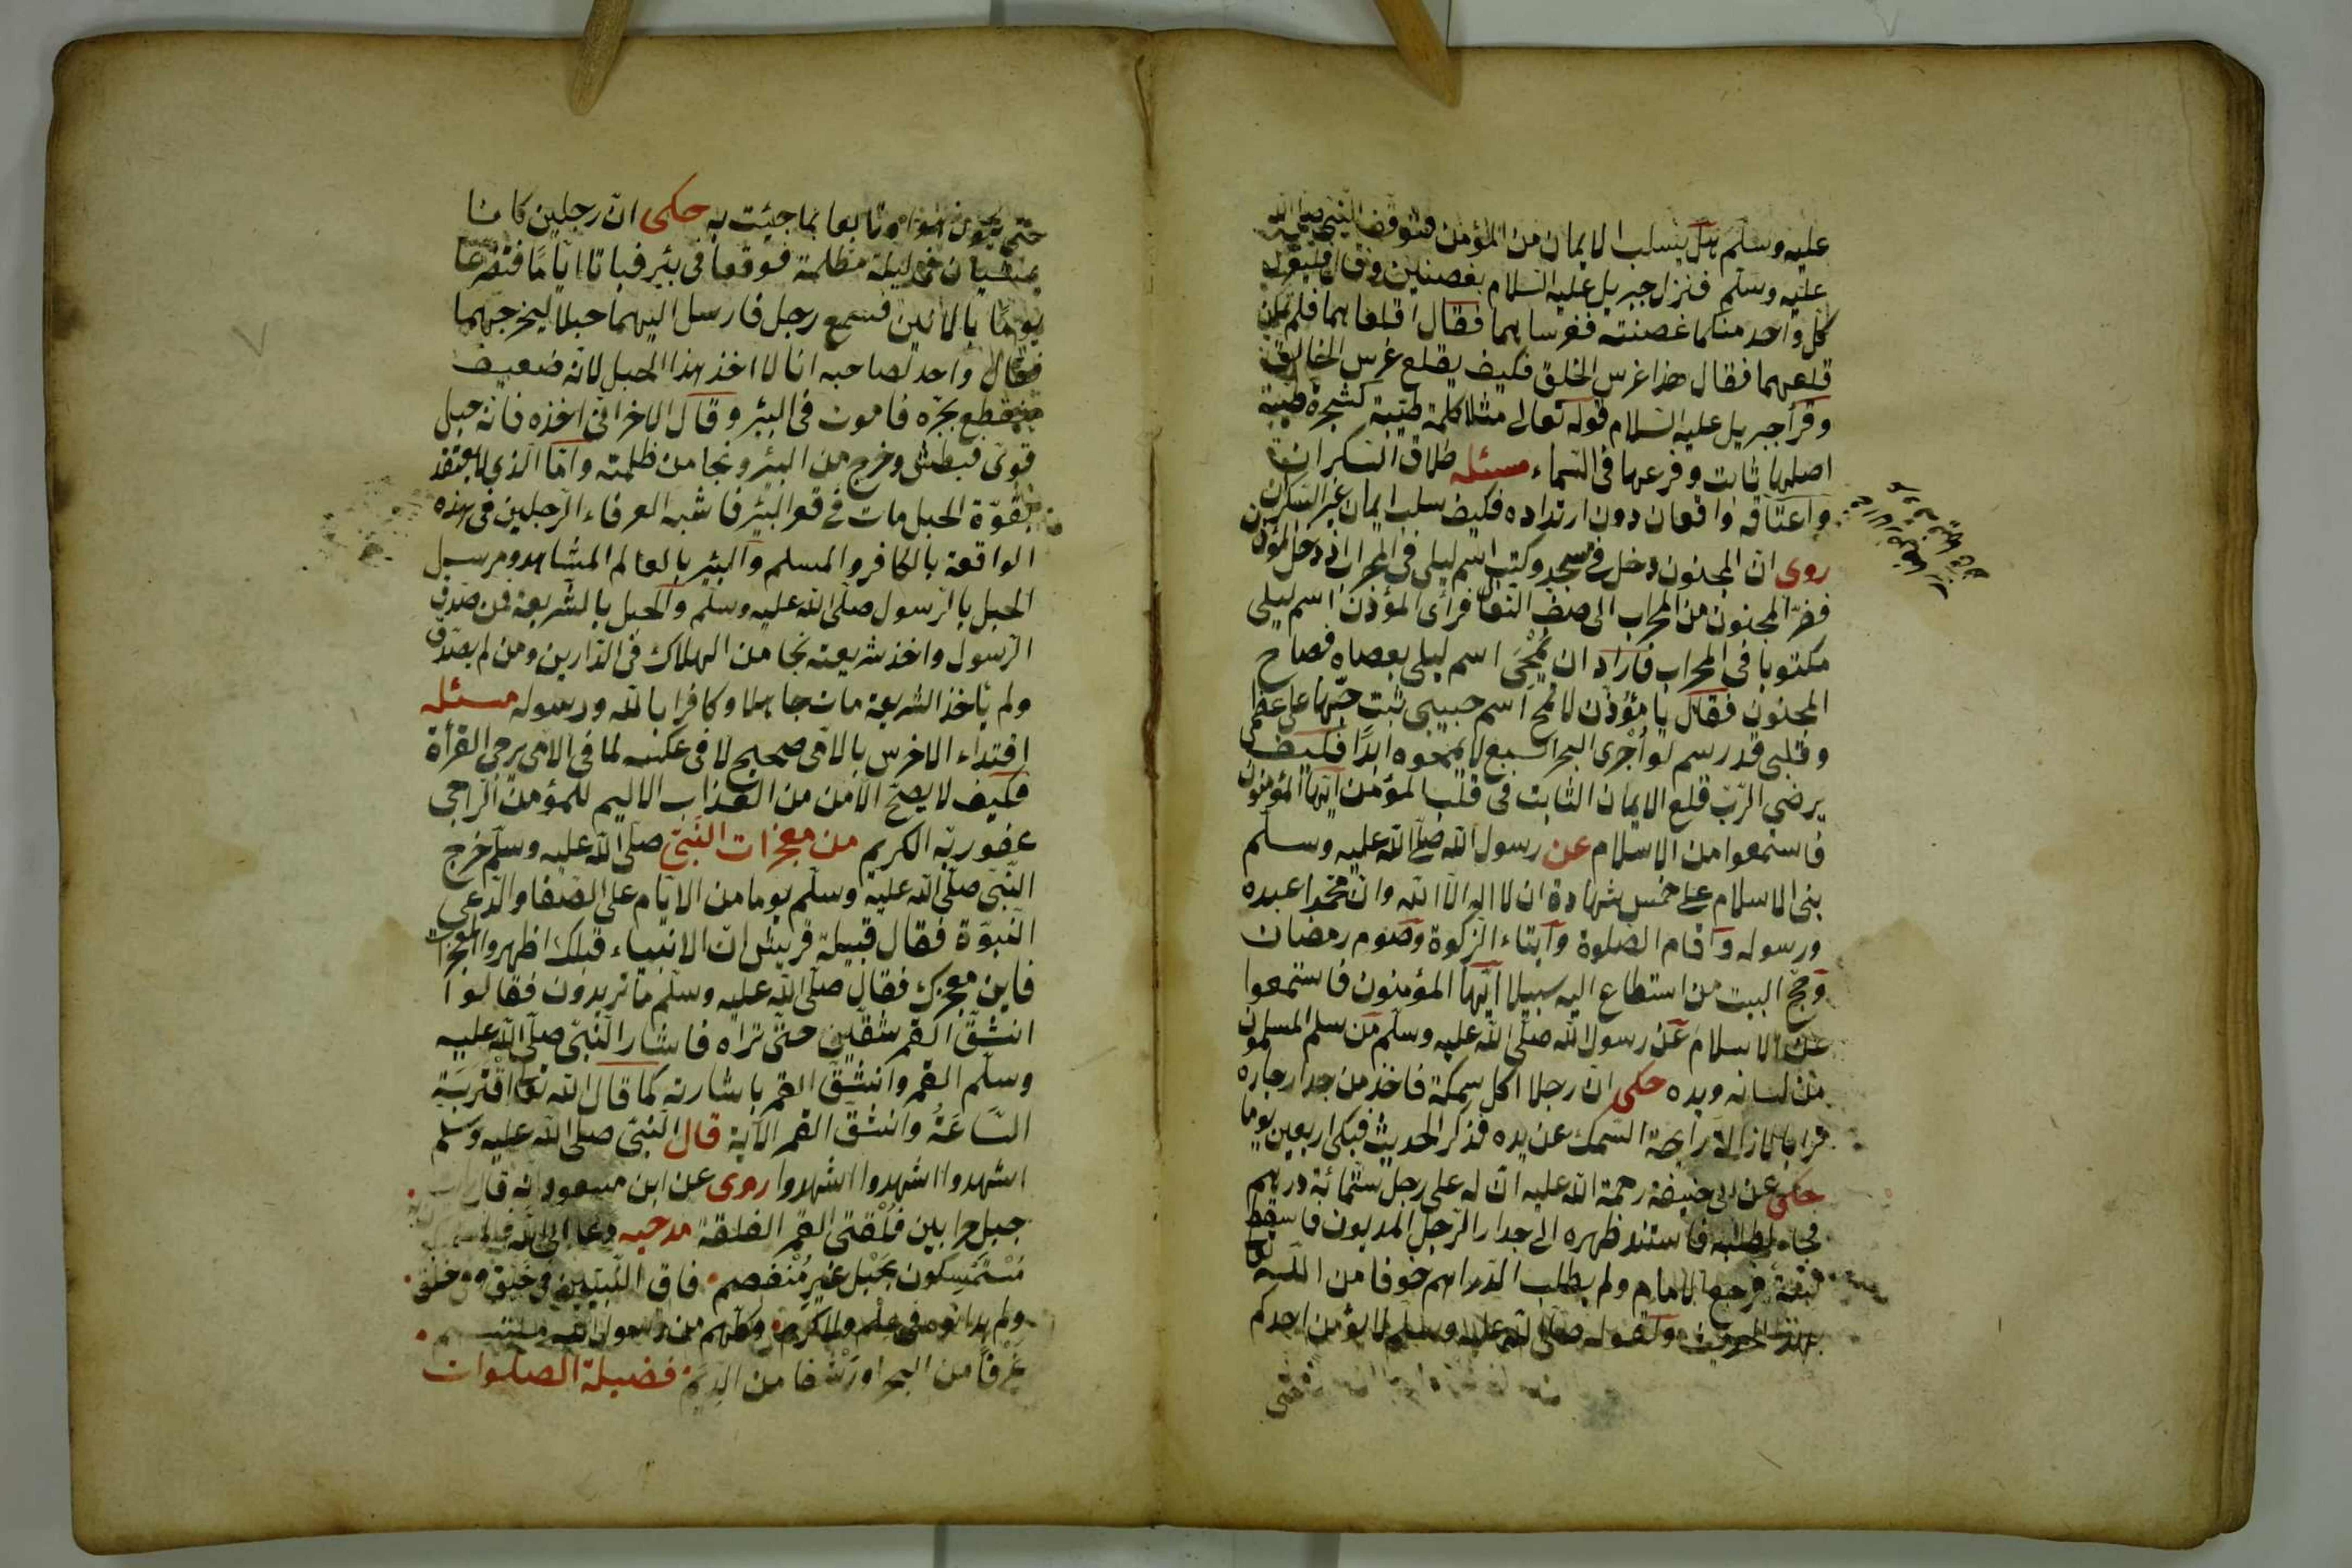 عليه وسلم هل يسلب الايمان من المؤمن فتوقف النبي صلى الله
عليه وسلم فنزل جبريل عليه السلام بغصنين وقال فليغرس
كل واحد منكما غصنته فغرسا بهما فقال اقلعا بهما فلم يمكن
قلعهما فقال هذا غرس الخلق فكيف يقلع غرس الخالق
وقرأ جبريل عليه السلام قوله تعالى مثلا كلمة طيبة كشجرة طيبة
اصلها ثابت وفرعها في السماء مسئله طلاق السكران
واعتاقه واقعان دون ارتداده فكيف سلب ايمان غير السكران
روى ان المجنون دخل في مسجد وكتب اسم ليلى في المحراب اذ دخل المؤذن
ففر المجنون من المحراب الى صف النعال فرأى المؤذن اسم ليلى
مكتوبا في المحراب فاراد ان يمحى اسم ليلى بعصاه فصاح
المجنون فقال يا مؤذن لا تمح اسم حبيبى ثبت حبها على عظمى
وقلبى قد رسم لو اجرى البحر السبع لا يمحوه ابدا فكيف
يرضى الرب قلع الايمان الثابت في قلب المؤمن ايها المؤمنون
فاستمعوا من الاسلام عن رسول الله صلى الله عليه وسلم
بنى الاسلام على خمس شهادة ان لا اله الا الله وان محمدا عبده
ورسوله واقام الصلوة وايتاء الزكوة وصوم رمضان
وحج البيت من استطاع اليه سبيلا ايها المؤمنون فاستمعوا
عن الاسلام عن رسول الله صلى الله عليه وسلم من سلم المسلمون
من لسانه ويده حكى ان رجلا اكل سمكة فاخذ من جدار جاره
ترابا لازالة رايحة السمك عن يده فذكر الحديث فبكى اربعين يوما
حكى عن ابى حنيفة رحمة الله عليه ان له على رجل ستمائة درهم
فجاء لطلبه فاستند ظهره الى جدار الرجل المديون فاسقط
فرجع الامام ولم يطلب الدراهم خوفا من الله
بهذا الحديث ولقوله صلى الله عليه وسلم لا يؤمن احدكم
حتى يكون هواه تابعا بما جيئت به حكى ان رجلين كانا
يمشيان في ليلة مظلمة فوقعا في بئر فباتا اياما فتضرعا
يوما بالانين فسمع رجل فارسل اليهما حبلا ليخرجهما
فقال واحد لصاحبه انا لا اخذ بهذا الحبل لانه ضعيف
فينقطع بجره فاموت في البئر وقال الاخر انى اخذه فانه حبل
قوى فبطش وخرج من البئر ونجا من ظلمته واما الذى لا يعتقد
بقوة الحبل مات في قعر البئر فاشبه العرفاء الرجلين في هذه
الواقعة بالكافر والمسلم والبئر بالعالم المشاهد ومرسل
الحبل بالرسول صلى الله عليه وسلم والحبل بالشريعة فمن صدق
الرسول واخذ شريعته نجا من الهلاك في الدارين ومن لم يصدق
ولم ياخذ الشريعة مات جاهلا وكافرا بالله ورسوله مسئله
اقتداء الاخرس بالامى صحيح لا في عكسه لما في الامى يرجى القرأة
فكيف لا يصح الامن من العذاب الاليم للمؤمن الراجى
عفو ربه الكريم من معجزات النبى صلى الله عليه وسلم خرج
النبى صلى الله عليه وسلم يوما من الايام على الصفا وادعى
النبوة فقال قبيلة قريش ان الانبياء قبلك اظهروا المعجزات
فاين معجزك فقال صلى الله عليه وسلم ما تريدون فقالوا
انشق القمر شقين حتى تراه فاشار النبى صلى الله عليه
وسلم القمر وانشق القمر باشارته كما قال الله تعالى اقتربت
الساعة وانشق القمر الآية قال النبى صلى الله عليه وسلم
اشهدوا اشهدوا اشهدوا روى عن ابن مسعود انه قال
جبل حرا بين فلقتى القمر الفلقة مدحيه دعا الى الله فالمستمسكون به
مستمسكون بحبل غير منفصم فاق النبيين في خلق وفي خلق
ولم يدانوه في علم ولا كرم وكلهم من رسول الله ملتمس
غرفا من البحر او رشفا من الديم فضيلة الصلوات